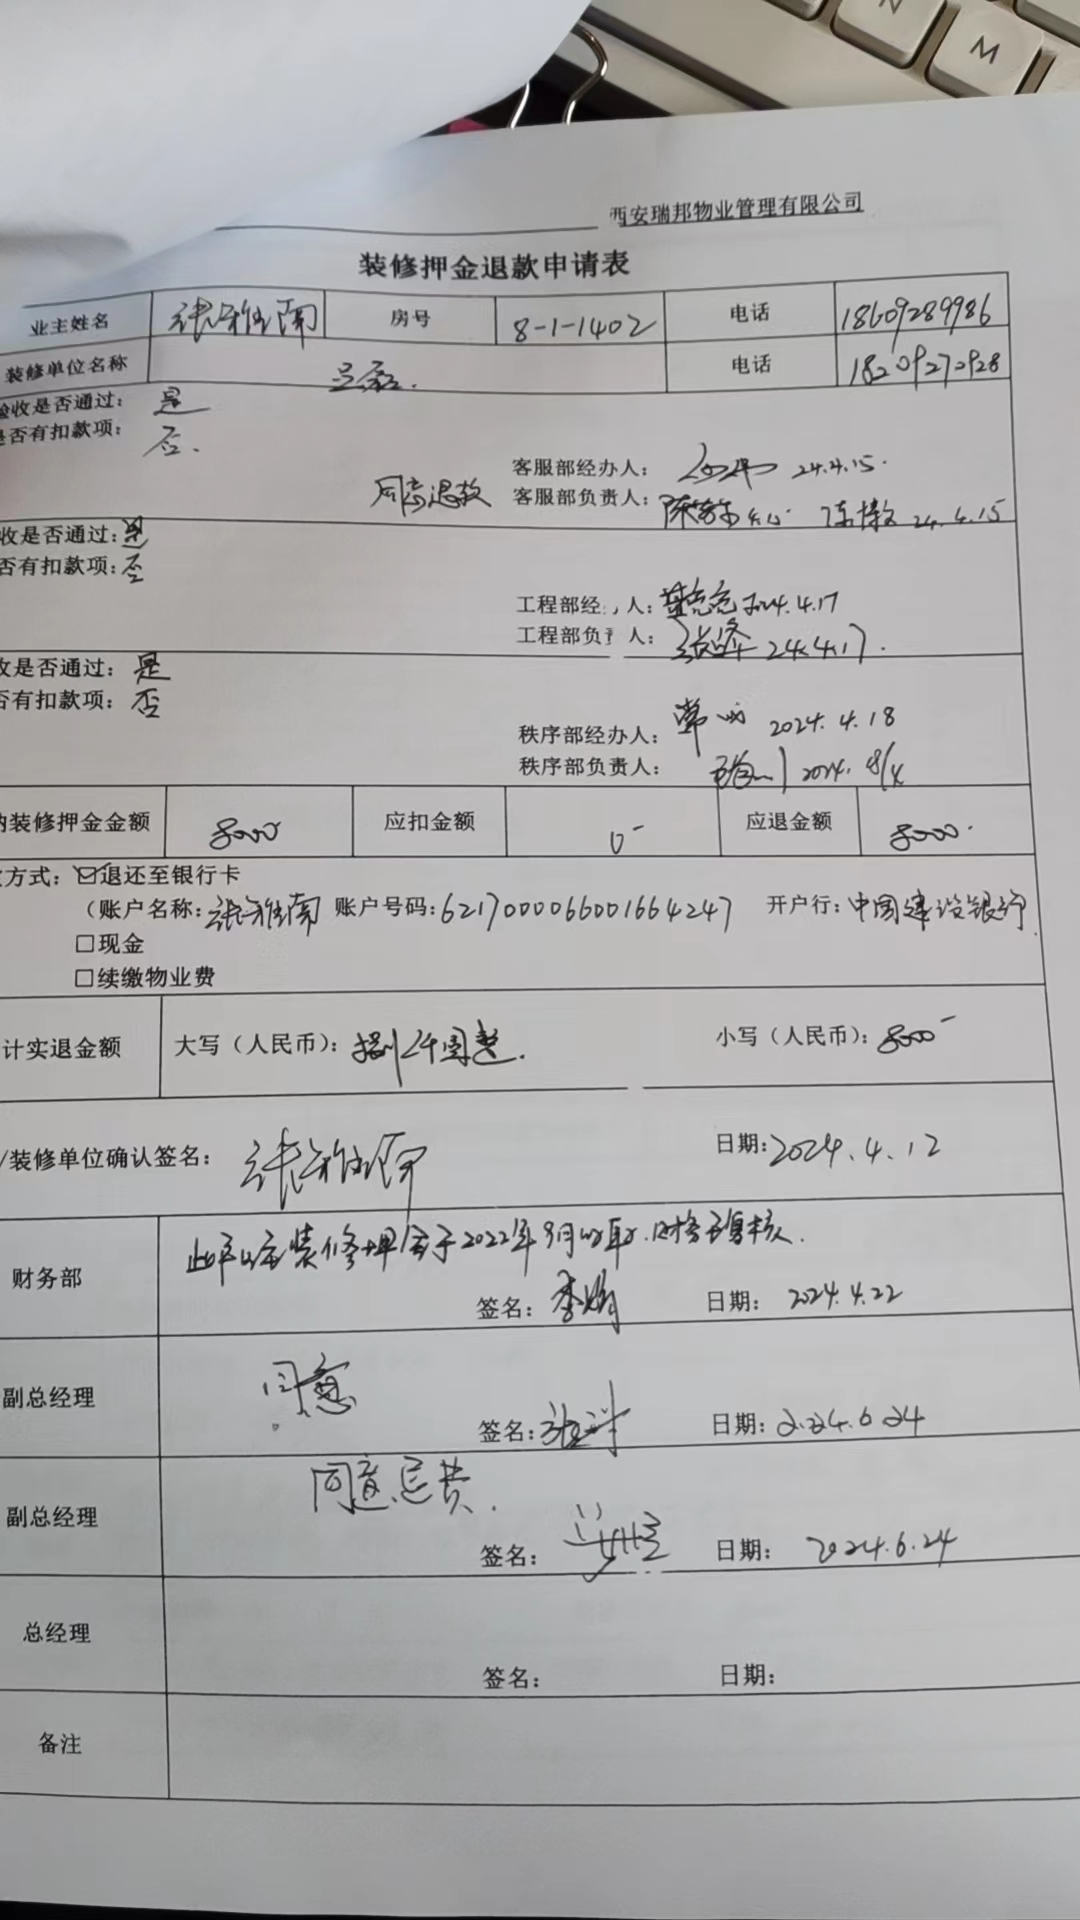 N
M
西安瑞邦物业管理有限公司
装修押金退款申请表
业主姓名 张雅南 房号 8-1-1402 电话 18609289986
装修单位名称 电话 18209270928
验收是否通过: 是
是否有扣款项: 否.
客服部经办人: 24.4.15.
同意退款 客服部负责人: 4.15 24.4.15
收是否通过: 是
否有扣款项: 否
工程部经 人: 2024.4.17
工程部负 人: 张峰 24.4.17.
收是否通过: 是
否有扣款项: 否
秩序部经办人: 2024.4.18
秩序部负责人: 2024.
纳装修押金金额 8000 应扣金额 0 应退金额 8000.
方式: ☑退还至银行卡
(账户名称: 张雅南 账户号码: 6217000066001664247 开户行: 中国建设银行
□现金
□续缴物业费
计实退金额 大写(人民币): 捌仟圆整. 小写(人民币): 8000
/装修单位确认签名: 张雅南 日期: 2024.4.12
财务部 此户业主装修押金于2022年9月收取.财务已复核.
签名: 李娟 日期: 2024.4.22
副总经理 同意
签名: 日期: 2024.6.24
副总经理 同意退费.
签名: 日期: 2024.6.24
总经理
签名: 日期:
备注